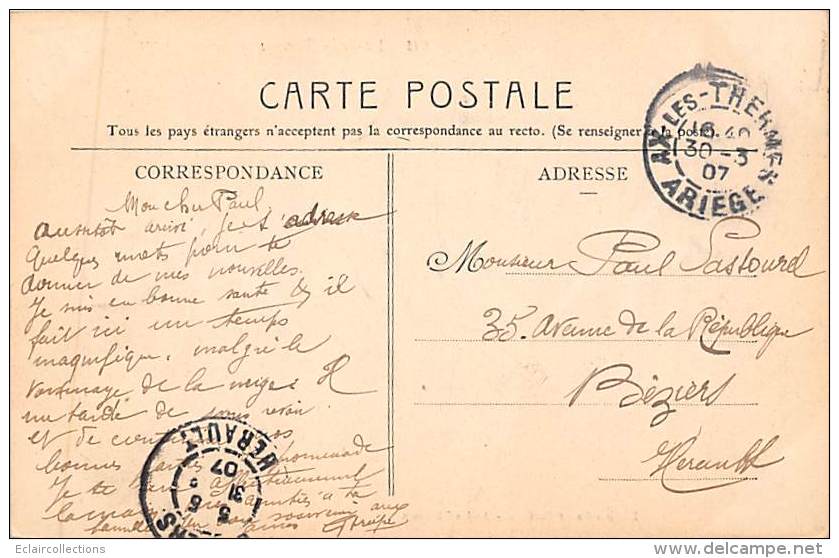 CARTE POSTALE
Tous les pays étrangers n'acceptent pas la correspondance au recto. (Se renseigner à la poste).
CORRESPONDANCE
Mon cher Paul
aussitôt arrivé, je t'adresse
Quelques mots pour te
donner de mes nouvelles.
Je suis en bonne santé & il
fait ici un temps
magnifique, malgré le
voisinage de la neige. Il
me tarde de vous revoir
et de
bonnes parties promenade
Je te
la main
famille souvenir aux
amis
ADRESSE
Monsieur Paul Lassourd
35. Avenue de la République
Béziers
Herault
AX-LES-THERMES
16 40
30 -3
07
ARIEGE
HERAULT
07
31
5
Eclaircollections
delcampe.net